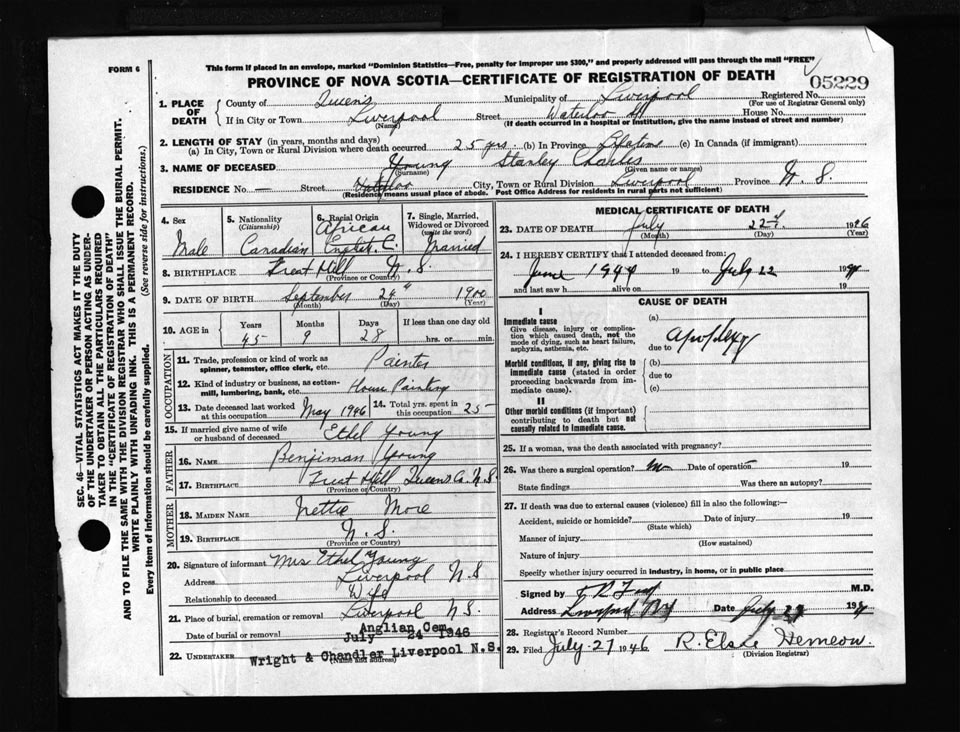 FORM 6
This form if placed in an envelope, marked "Dominion Statistics—Free, penalty for improper use $300," and properly addressed will pass through the mail "FREE"
PROVINCE OF NOVA SCOTIA—CERTIFICATE OF REGISTRATION OF DEATH
05229
SEC. 46—VITAL STATISTICS ACT MAKES IT THE DUTY
OF THE UNDERTAKER OR PERSON ACTING AS UNDER-
TAKER TO OBTAIN ALL THE PARTICULARS REQUIRED
IN THE "CERTIFICATE OF REGISTRATION OF DEATH"
AND TO FILE THE SAME WITH THE DIVISION REGISTRAR WHO SHALL ISSUE THE BURIAL PERMIT.
WRITE PLAINLY WITH UNFADING INK. THIS IS A PERMANENT RECORD.
Every item of information should be carefully supplied. (See reverse side for instructions.)
1. PLACE OF DEATH
County of Queens Municipality of Liverpool Registered No.
(For use of Registrar General only)
If in City or Town Liverpool Street Waterloo St House No.
(Name) (If death occurred in a hospital or institution, give the name instead of street and number)
2. LENGTH OF STAY (in years, months and days)
(a) In City, Town or Rural Division where death occurred 25 yrs. (b) In Province Lifetime (c) In Canada (if immigrant)
3. NAME OF DECEASED Young Stanley Charles
(Surname) (Given name or names)
RESIDENCE No. — Street Waterloo City, Town or Rural Division Liverpool Province N. S.
(Residence means usual place of abode. Post Office Address for residents in rural parts not sufficient)
4. Sex
Male
5. Nationality
(Citizenship)
Canadian
6. Racial Origin
African
English C.
7. Single, Married,
Widowed or Divorced
(write the word)
Married
8. BIRTHPLACE Great Hill N. S.
(Province or Country)
9. DATE OF BIRTH September 24th 1900
(Month) (Day) (Year)
10. AGE in Years Months Days If less than one day old
45 9 28 hrs. or min.
OCCUPATION
11. Trade, profession or kind of work as
spinner, teamster, office clerk, etc. Painter
12. Kind of industry or business, as cotton-
mill, lumbering, bank, etc. House Painting
13. Date deceased last worked
at this occupation May 1946
14. Total yrs. spent in
this occupation 25
15. If married give name of wife
or husband of deceased Ethel Young
FATHER
16. NAME Benjiman Young
17. BIRTHPLACE Great Hill Queens Co. N. S.
(Province or Country)
MOTHER
18. MAIDEN NAME Nettie More
19. BIRTHPLACE N. S.
(Province or Country)
20. Signature of informant Mrs Ethel Young
Address Liverpool N. S
Relationship to deceased Wife
21. Place of burial, cremation or removal Liverpool N S.
Anglian Cem
Date of burial or removal July 24 1946
22. UNDERTAKER Wright & Chandler Liverpool N.S.
(Name and address)
MEDICAL CERTIFICATE OF DEATH
23. DATE OF DEATH July 22nd 1946
(Month) (Day) (Year)
24. I HEREBY CERTIFY that I attended deceased from:
June 1944 19 to July 22 19
and last saw h alive on 19
CAUSE OF DEATH
I
Immediate cause
Give disease, injury or complica-
tion which caused death, not the
mode of dying, such as heart failure,
asphyxia, asthenia, etc.
(a) apoplexy
due to
Morbid conditions, if any, giving rise to
immediate cause (stated in order
proceeding backwards from im-
mediate cause).
(b)
due to
(c)
II
Other morbid conditions (if important)
contributing to death but not
causally related to immediate cause.
25. If a woman, was the death associated with pregnancy?
26. Was there a surgical operation? no Date of operation 19
State findings Was there an autopsy?
27. If death was due to external causes (violence) fill in also the following:—
Accident, suicide or homicide? Date of injury 19
(State which)
Manner of injury
(How sustained)
Nature of injury
Specify whether injury occurred in industry, in home, or in public place
Signed by M.D.
Address Liverpool NS Date July 19
28. Registrar's Record Number
29. Filed July 27 1946 R. Elsie Hemeon.
(Division Registrar)